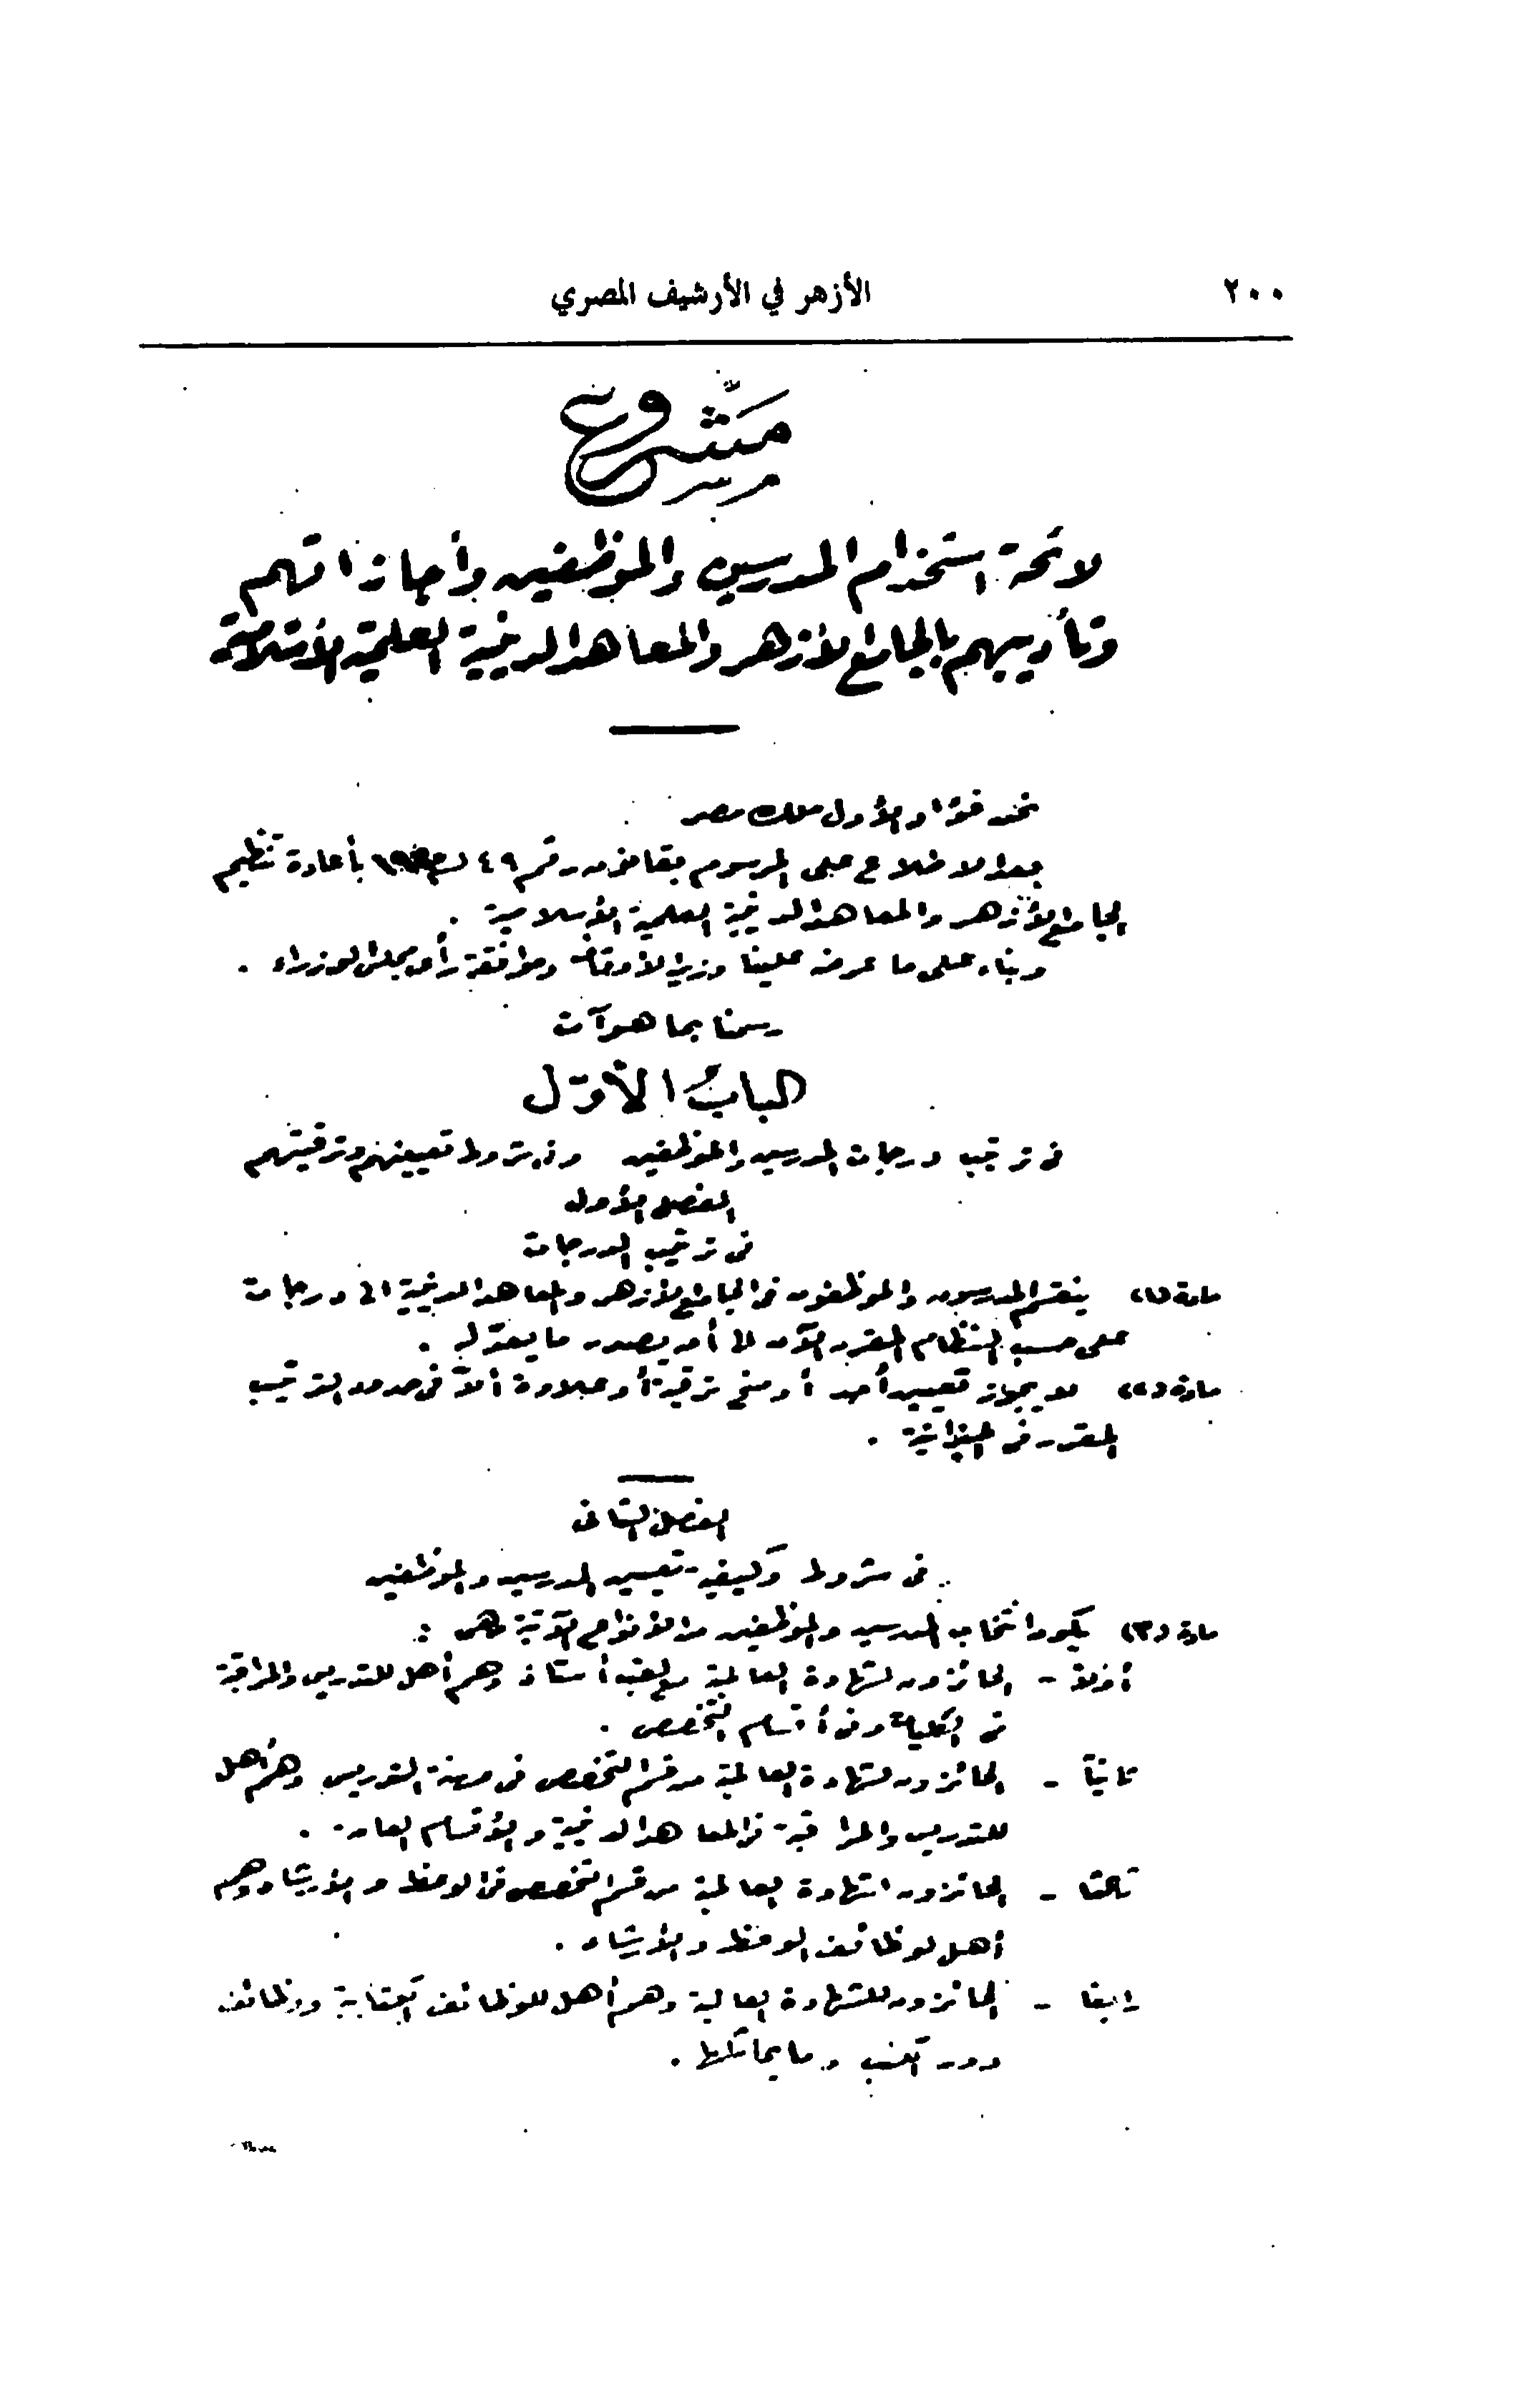 ٢٠٠
الأزهر في الأرشيف المصري
مشروع
مرسوم
لائحة استخدام المدرسين والموظفين وأجازاتهم
وتأديبهم بالجامع الأزهر والمعاهد الدينية العلمية الأسلامية
نحن فؤاد الأول ملك مصر
بعد الاطلاع على المرسوم بقانون رقم ٤٩ لسنة بأعادة تنظيم
الجامع الأزهر والمعاهد الدينية العلمية الأسلامية .
وبناء على ما عرضه علينا وزير الأوقاف وموافقة رأى مجلس الوزراء .
رسمنا بما هو آت
الباب الأول
فى ترتيب درجات المدرسين والموظفين وفى شروط تعيينهم وترقيتهم
الفصل الأول
فى ترتيب الدرجات
مادة (١) ينقسم المدرسون والموظفون فى الجامع الأزهر والمعاهد الدينية الى درجات
على حسب النظام المقرر الآن الى أن يصدر ما يعدّله .
مادة (٢) لا يجوز تعيين أحد أو منح ترقية أو علاوة ألاّ فى حدود الترتيب
المقرر فى الميزانية .
الفصل الثانى
فى شروط وكيفية تعيين المدرسين والموظفين
مادة (٣) يكون انتخاب المدرسين والموظفين من الأنواع الآتية وهى :
أولاً - الحائزون لشهادة العالمية مع لقب أستاذ وهم أهل للتدريس والمراقبة
فى الكليات وفى أقسام التخصص .
ثانياً - الحائزون لشهادة العالمية من قسم التخصص فى مهنة التدريس وهم أهل
للتدريس والمراقبة فى المعاهد الدينية والأقسام العامة .
ثالثا - الحائزون لشهادة العالمية من قسم التخصص فى الوعظ والأرشاد وهم
أهل لوظائف الوعظ والأرشاد .
رابعا - الحائزون للشهادة العالية وهم أهل للوظائف الكتابية ووظائف
دور الكتب وما يماثلها .